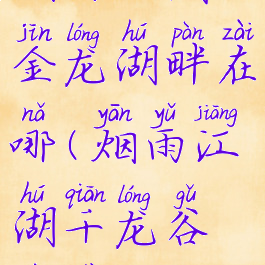 jīn lóng hú pàn zài
金龙湖畔在
nǎ yān yǔ jiāng
哪(烟雨江
hú qiān lóng gǔ
湖千龙谷